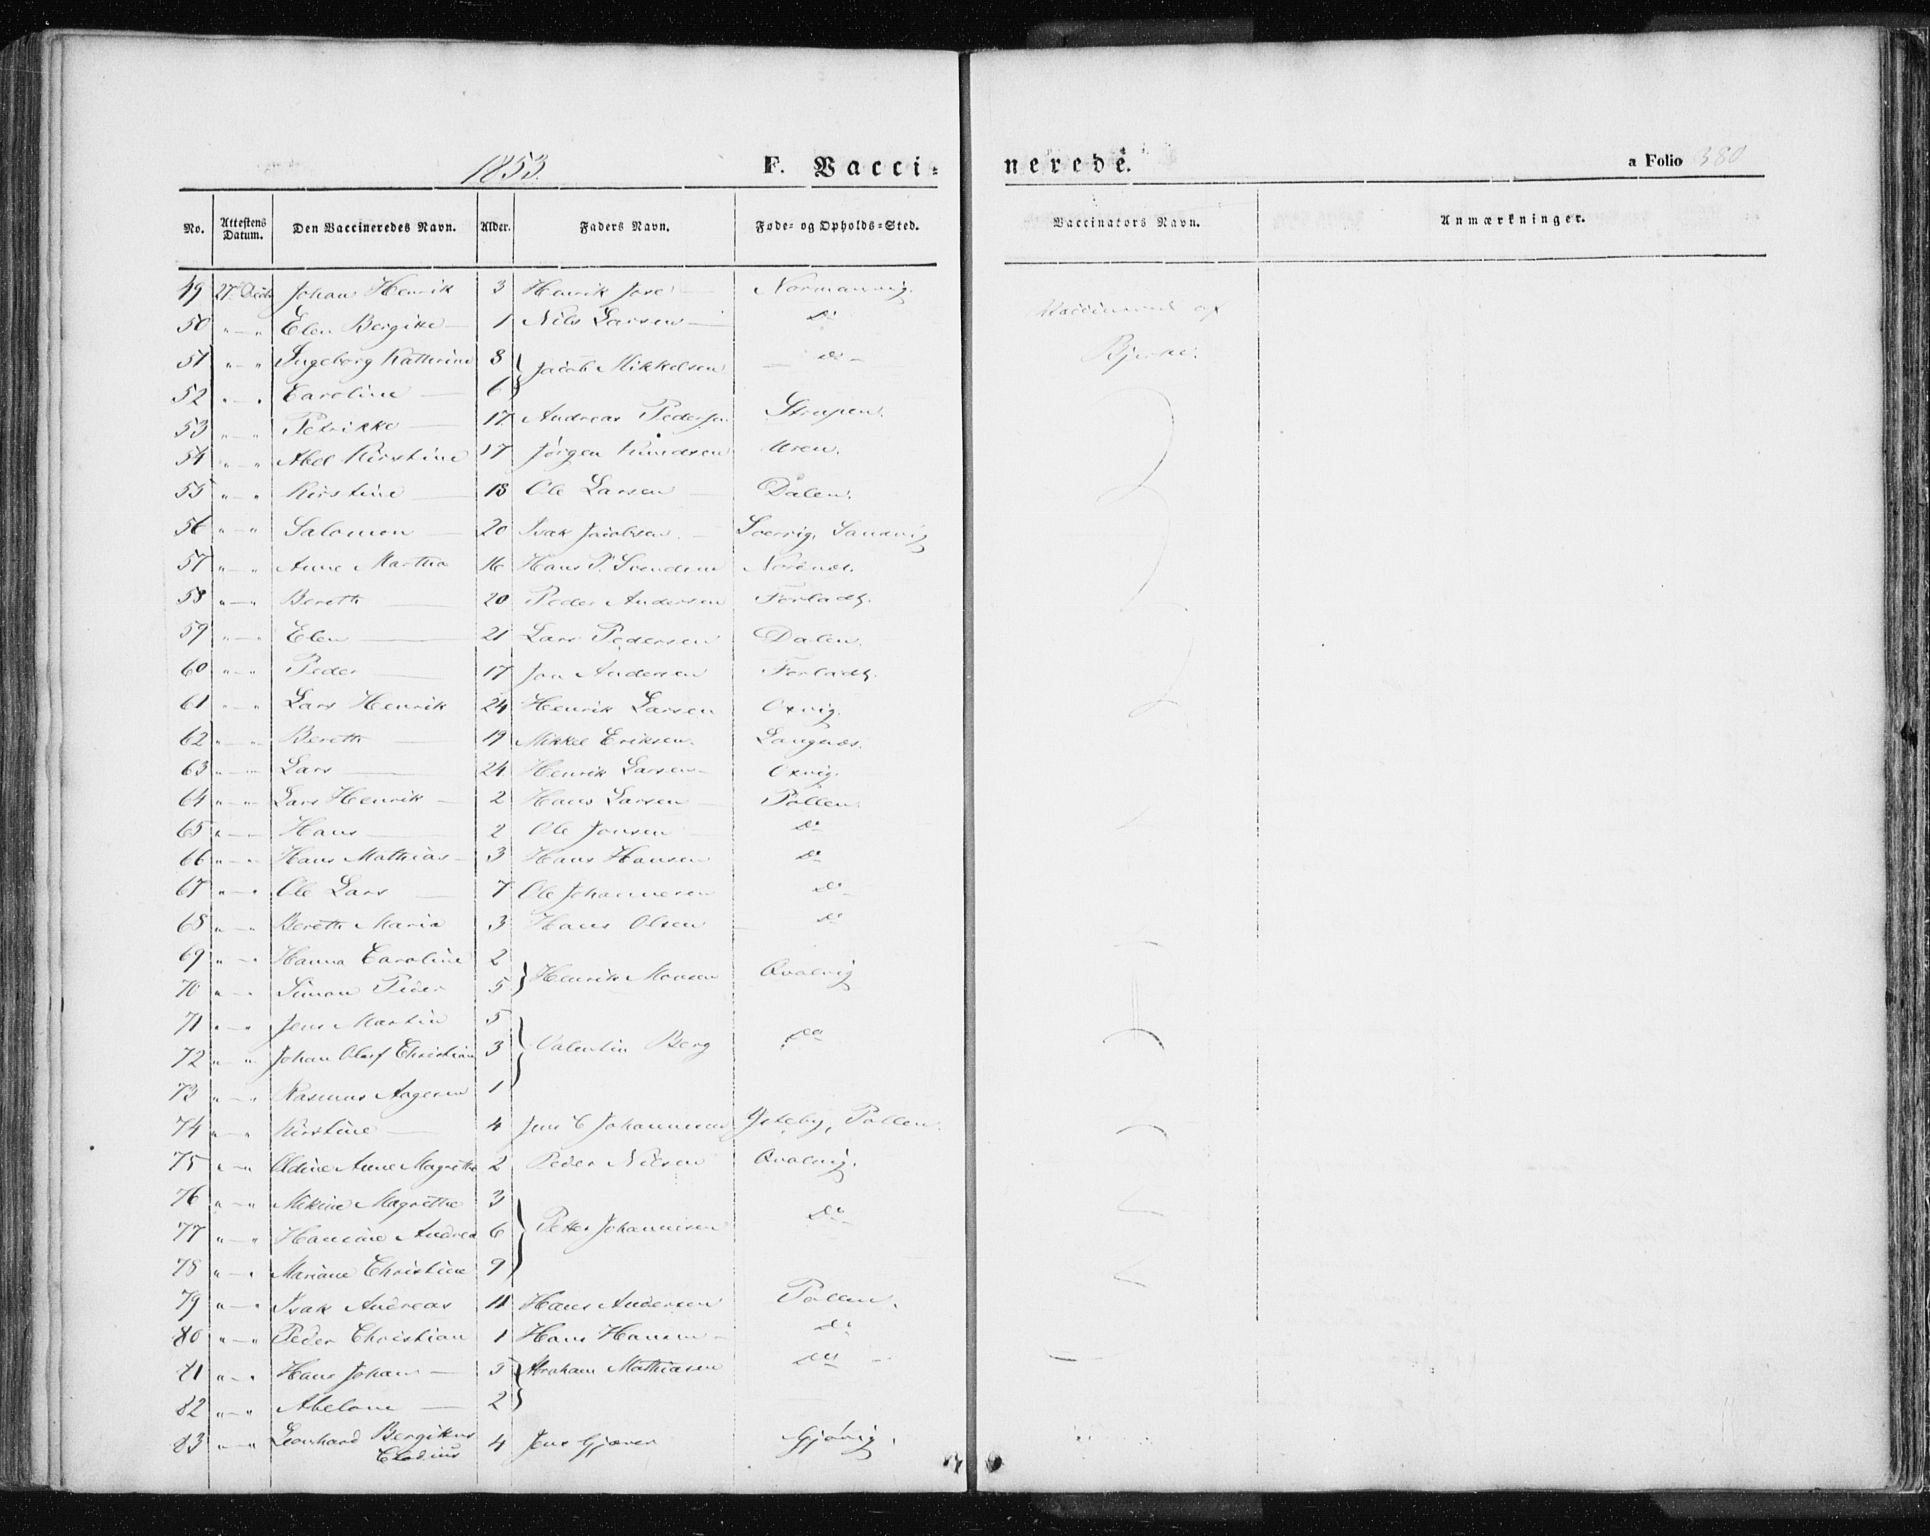 1853. F. Vacci-
nerede. a Folio 380
No. Attestens Datum. Den Vaccineredes Navn. Alder. Faders Navn. Føde- og Opholds-Sted. Vaccinators Navn. Anmærkninger.
49 27. Johan Henrik 3 Henrik Normanvig.
50 " — " Elen Bergitte — 1 Nils Larsen — Do Vaccineret af
51 " — " Ingeborg Kathrine 8 } Jacob Mikkelsen — Do — Bjerke.
52 " — " Caroline — 6
53 " — " Petrikke — 17 Andreas Pedersen Strupen.
54 " — " Abel Kirstine 17 Jørgen Knudsen Uren.
55 " — " Kirstine — 18 Ole Larsen — Dalen.
56 " — " Salomon — 20 Isak Jacobsen. — Sandvig
57 " — " Anne Martha 16 Hans P. Svendsen
58 " — " Bereth — 20 Peder Andersen
59 " — " Elen — 21 Lars Pedersen Dalen.
60 " — " Peder — 17 Jon Andersen
61 " — " Lars Henrik 24 Henrik Larsen Oxvig.
62 " — " Bereth — 19 Mikkel Eriksen. Langnæs.
63 " — " Lars — 24 Henrik Larsen — Oxvig.
64 " — " Lars Henrik — 2 Hans Larsen — Pollen.
65 " — " Hans — 2 Ole Jonsen — Do
66 " — " Hans Mathias — 3 Hans Hansen Do
67 " — " Ole Lars — 7 Ole Johannesen Do —
68 " — " Bereth Maria 3 Hans Olsen — Do
69 " — " Hanna Caroline 2 } Henrik Monsen Qvalvig
70 " — " Simon Peder 5
71 " — " Jens Martin 5
72 " — " Johan Oluf Christian 3 } Valentin Berg Do
73 " — " Rasmus Angerus 1
74 " — " Kirstine — 4 Jens C Johannesen Pollen.
75 " — " Oldine Anne Magrethe 2 Peder Nilsen Qvalvig.
76 " — " Mikine Magrethe 3
77 " — " Hansine Andrea 6 } Petter Johannesen Do
78 " — " Mariane Christine 9
79 " — " Isak Andreas 11 Hans Andersen Pollen.
80 " — " Peder Christian 1 Hans Hansen — Do
81 " — " Hans Johan — 5 } Abraham Mathiasen Do —
82 " — " Abelone — 2
83 " — " Leonhard Bergitus Clodius 4 Jens Gjæver Gjøvig.